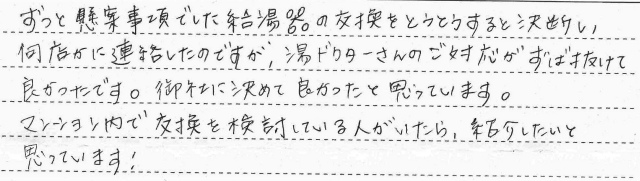 ずっと懸案事項でした給湯器の交換をとうとうすると決断し、
何店かに連絡したのですが、湯ドクターさんのご対応がずば抜けて
良かったです。御社に決めて良かったと思っています。
マンション内で交換を検討している人がいたら、紹介したいと
思っています!